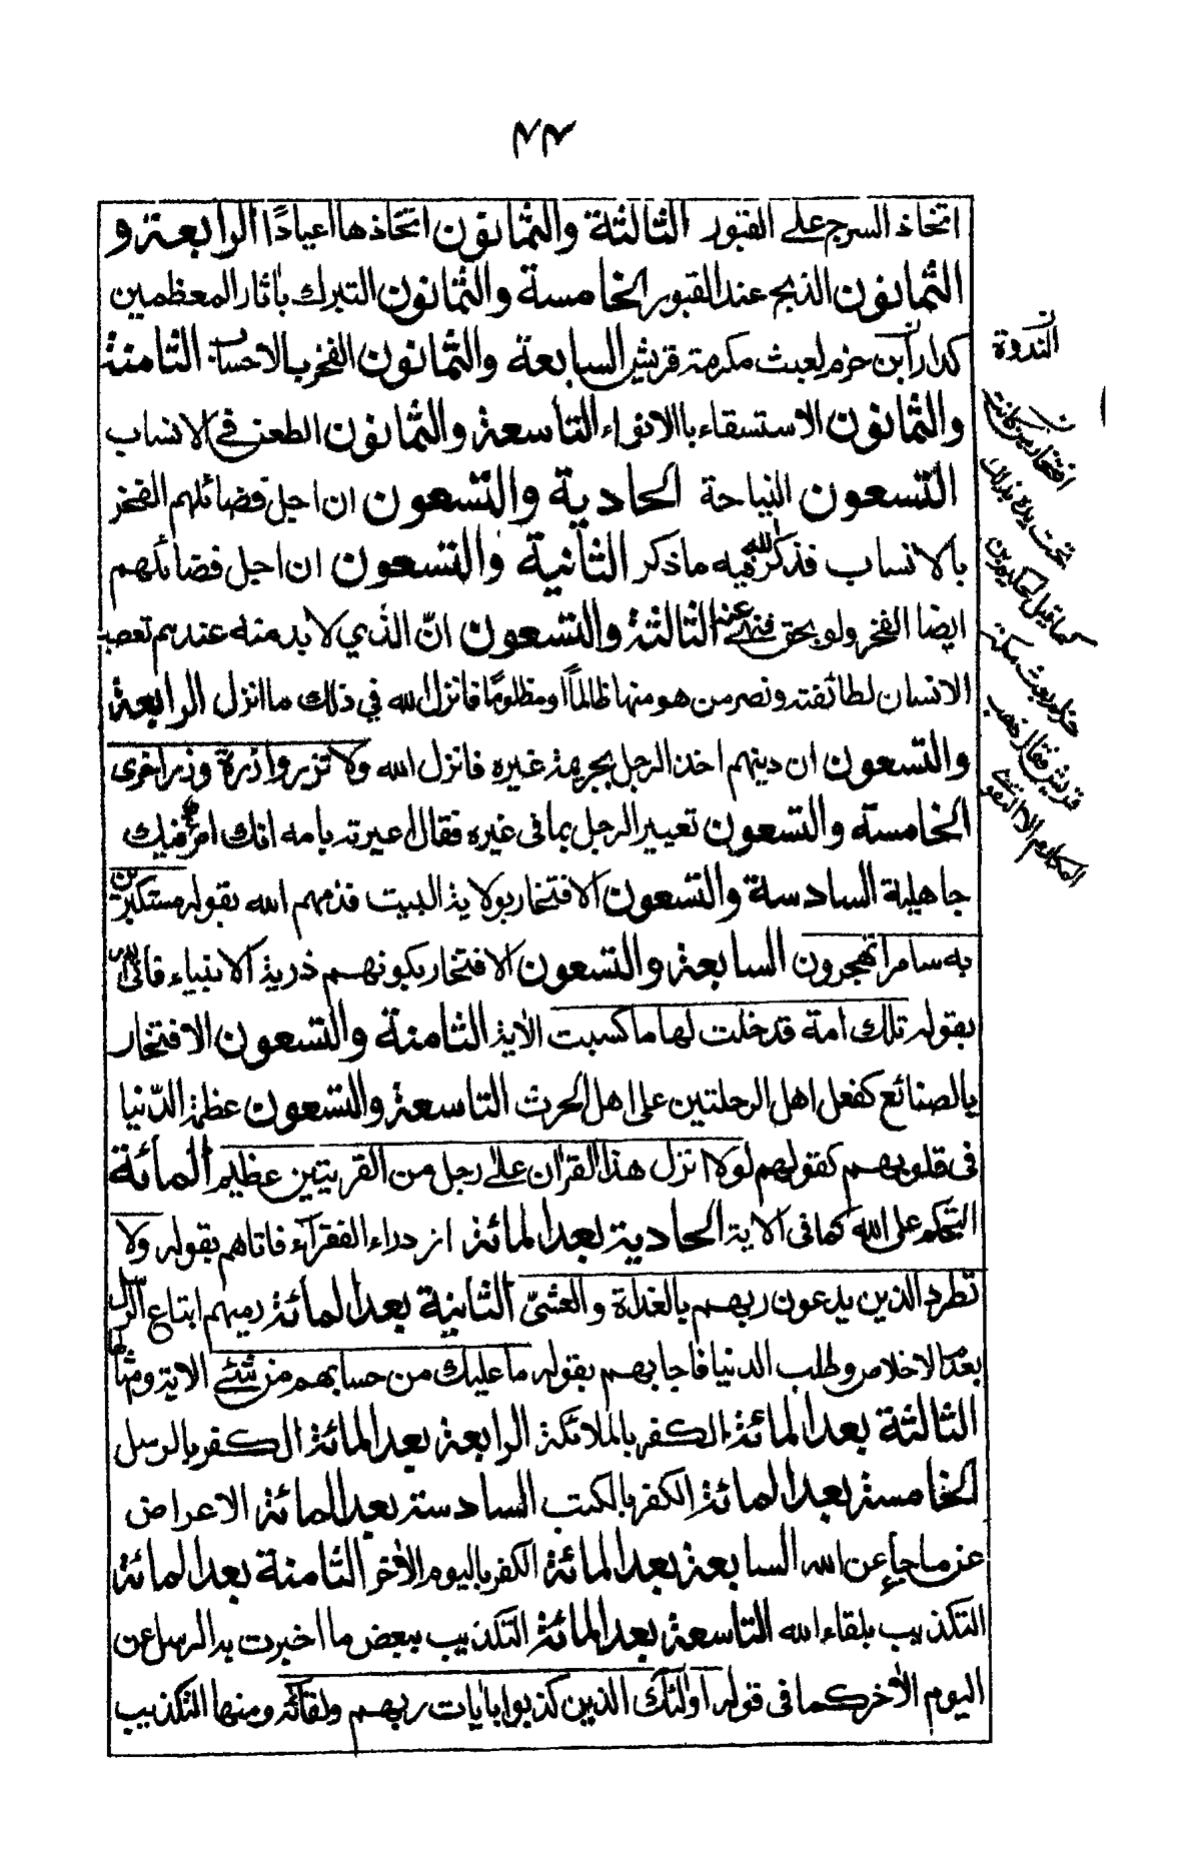 ٤٤
اتخاذ السرج على القبور الثالثة والثمانون اتخاذها اعيادًا الرابعة و
الثمانون الذبح عند القبور الخامسة والثمانون التبرك باٰثار المعظمين
كدار الندوة السابعة والثمانون الفخر بالاحساب الثامنة
والثمانون الاستسقاء بالانواء التاسعة والثمانون الطعن في الانساب
التسعون النياحة الحادية والتسعون ان اجل فضائلهم الفخر
بالانساب فذكر الله فيه ما ذكر الثانية والتسعون ان اجل فضائلهم
ايضا الفخر ولو بحق فنهى عنه الثالثة والتسعون انّ الذي لا بد منه عندهم تعصب
الانسان لطائفته ونصر من هو منها ظالماً او مظلومًا فانزل الله في ذلك ما انزل الرابعة
والتسعون ان دينهم اخذ الرجل بجريمة غيره فانزل الله ولا تزر وازرة وزر اخرى
الخامسة والتسعون تعيير الرجل بما فى غيره فقال اعيرته بامه انك امرؤ فيك
جاهلية السادسة والتسعون الافتخار بولاية البيت فذمهم الله بقوله مستكبرين
به سامرا تهجرون السابعة والتسعون الافتخار بكونهم ذرية الانبياء فاتى الله
بقوله تلك امة قد خلت لها ما كسبت الاٰية الثامنة والتسعون الافتخار
بالصنائع كفعل اهل الرحلتين على اهل الحرث التاسعة والتسعون عظمة الدّنيا
فى قلوبهم كقولهم لولا نزل هذا القراٰن على رجل من القريتين عظيم المائة
التحكم على الله كما فى الاٰية الحادية بعد المائة ازدراء الفقرآء فاتاهم بقوله ولا
تطرد الذين يدعون ربهم بالغداة والعشىّ الثانية بعد المائة رميهم اتباع الرسل
بعدم الاخلاص وطلب الدنيا فاجابهم بقوله ما عليك من حسابهم من شئ الاية ومثلها
الثالثة بعد المائة الكفر بالملائكة الرابعة بعد المائة الكفر بالرسل
الخامسة بعد المائة الكفر بالكتب السادسة بعد المائة الاعراض
عن ما جاء عن الله السابعة بعد المائة الكفر باليوم الاٰخر الثامنة بعد المائة
التكذيب بلقاء الله التاسعة بعد المائة التكذيب ببعض ما اخبرت به الرسل عن
اليوم الاٰخر كما فى قوله اولئك الذين كذبوا باٰيات ربهم ولقائه ومنها التكذيب
الندوة
افتخار من كانت
تحت يده بذلك
كما قيل لحكيم بن
حزام بعت مكرمة
قريش فقال ذهبت
المكارم الا التقوى